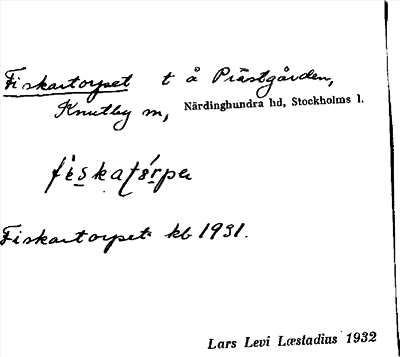 Fiskartorpet t å Prästgården,
Knutby sn, Närdinghundra hd, Stockholms l.
fìskatɔ́rpeṇ
Fiskartorpet kb 1931.
Lars Levi Læstadius 1932